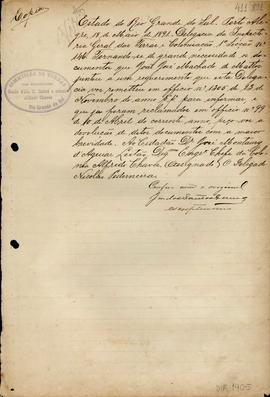 Copia
Estado do Rio Grande do Sul. Porto Ale-
gre, 18 de Maio de 1891. Delegacia da Inspecto-
ria Geral das Terras e Colonisação 1ª Secção Nº
Tornando-se de grande necessidade os do-
cumentos que José Machado de Mattos
juntou a um requerimento que esta Delega-
cia vos remetteu em officio nº 1305 de 13 de
Novembro do anno p.p. para informar, e
que ja foram reclamados em officio nº 49
de 10 de Abril do corrente anno, peço vos a
devolução de ditos documentos com a maior
brevidade. Ao Cidadão Dr José Montaury
d'Aguiar Leitão, Digmº Engº Chefe da Colo-
nia Alfredo Chaves (Assignado) O Delegado
Nicolau Pederneira.
Confere com o original
escripturario
DIR-1905